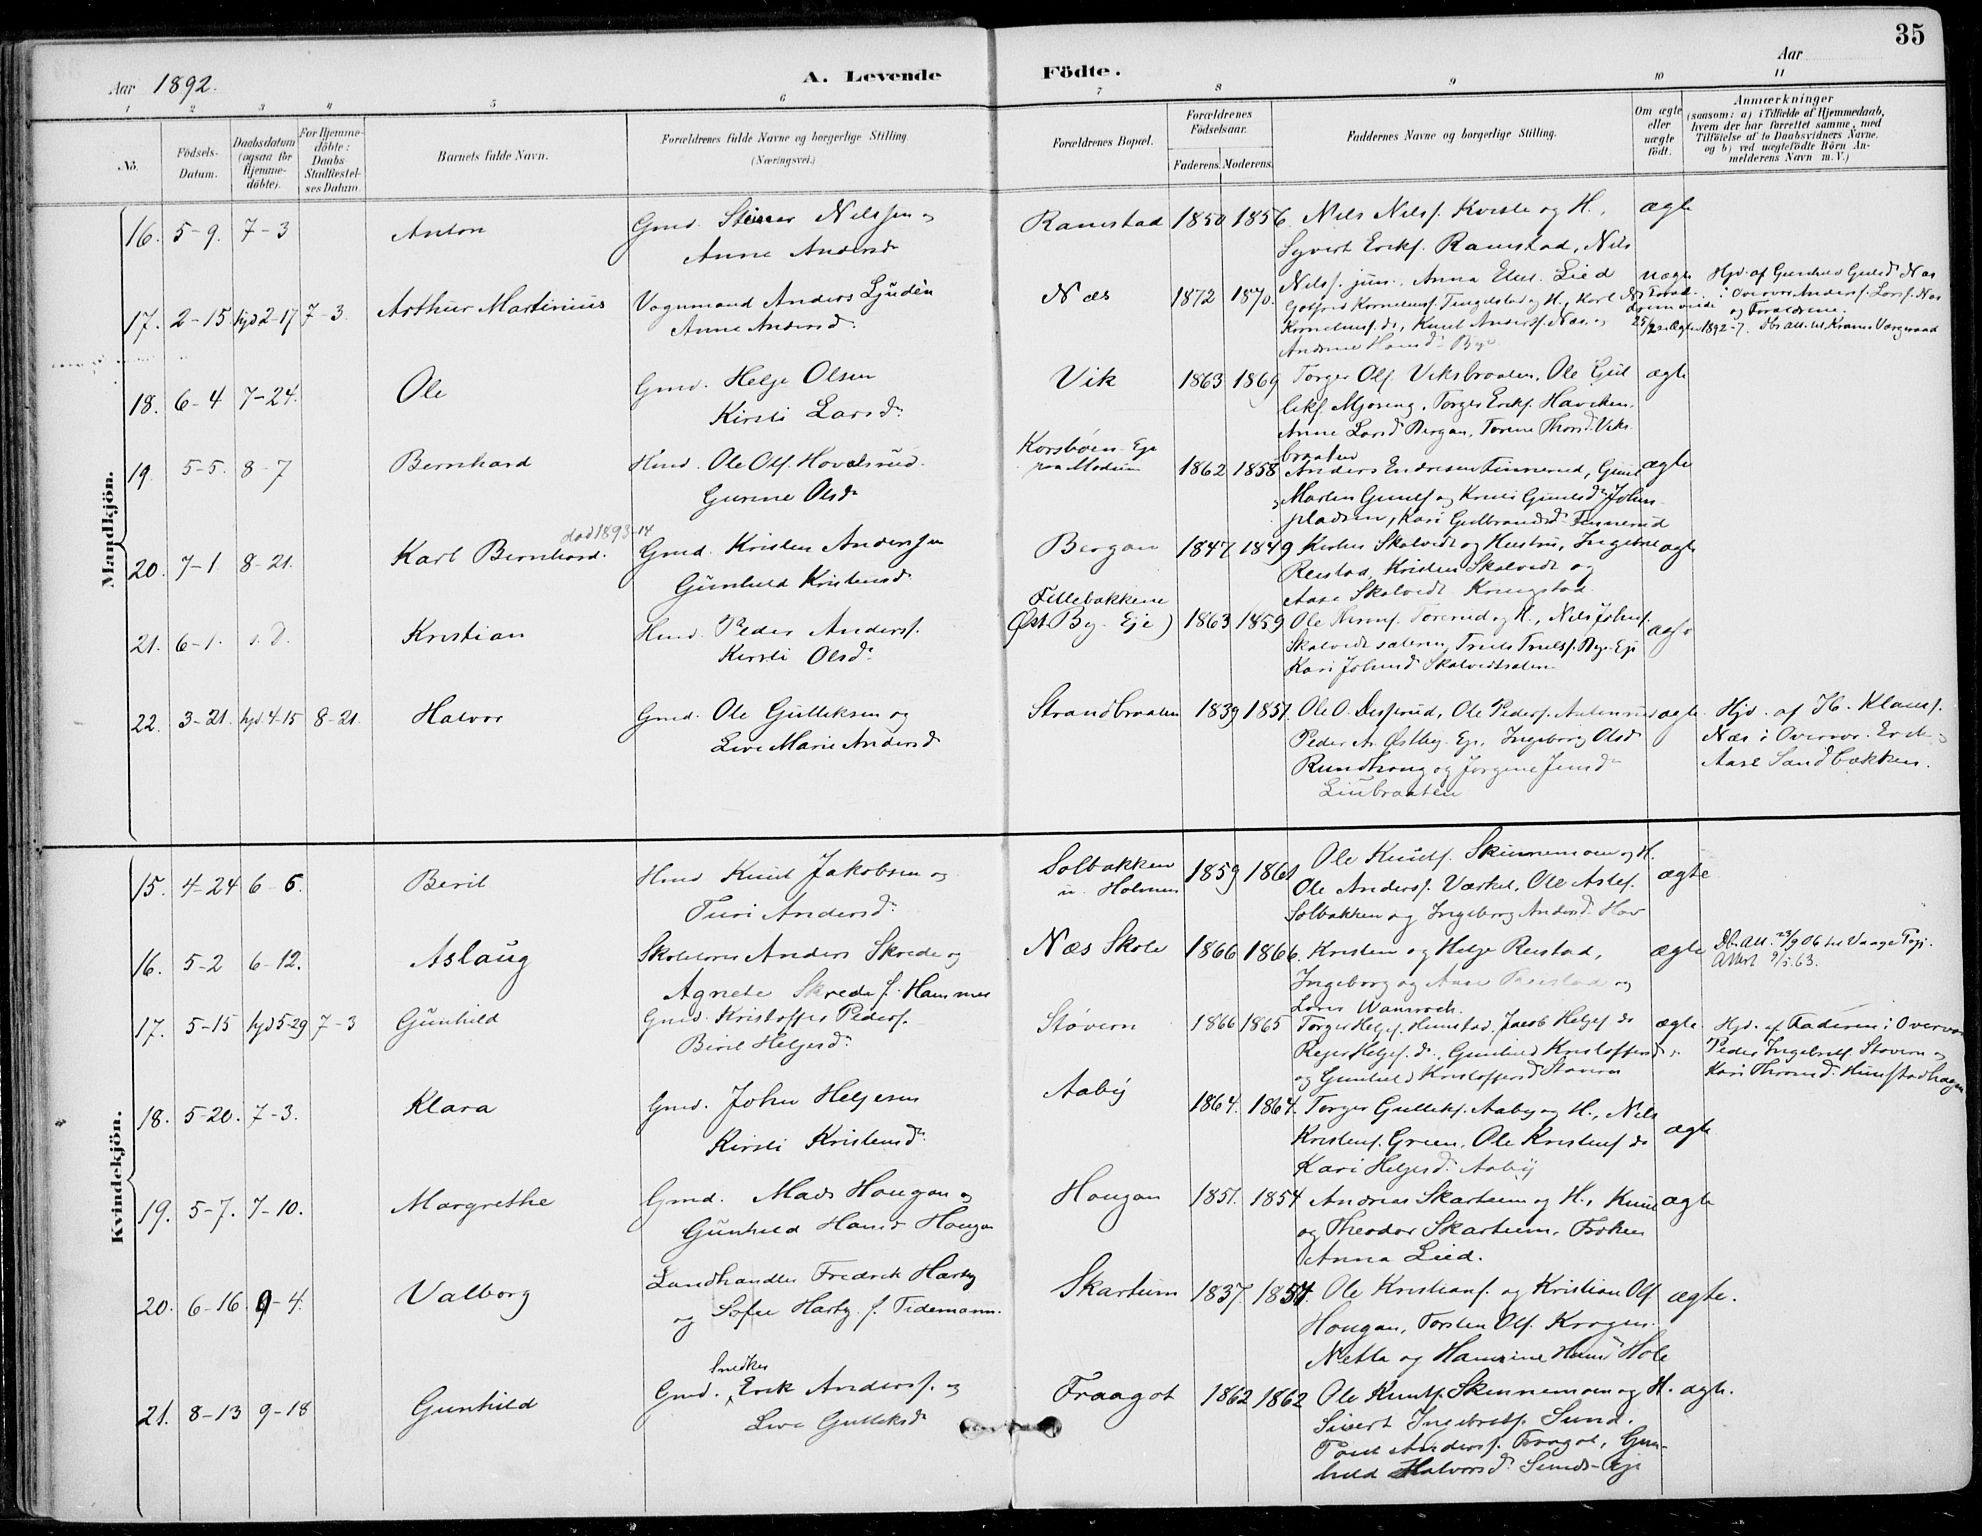 35
Aar 1892.
A. Levende Födte.
Aar
1 2 3 4 5 6 7 8 9 10 11
No.
Födsels-Datum.
Daabsdatum (ogsaa for Hjemmedöbte).
For Hjemmedöbte: Daabs-Stadfæstelses Datum.
Barnets fulde Navn.
Forældrenes fulde Navne og borgerlige Stilling (Næringsvei.)
Forældrenes Bopæl.
Forældrenes Födselsaar.
Faderens. Moderens.
Faddernes Navne og borgerlige Stilling.
Om ægte eller uægte födt.
Anmærkninger (saasom: a) i Tilfælde af Hjemmedaab, hvem der har forrettet samme, med Tilföielse af to Daabsvidners Navne. og b) ved uægtefödte Börn Anmelderens Navn m. V.)
Mandkjön.
16. 5-9. 7-3 Anton Gmd. Steinar Nilssen og
Anne Andersd.
Ramstad 1850 1856. Nils Nilsf. Kviste og H.,
Syvert Erikf. Ramstad, Nils
Nilsf. jun., Anna Lied
ægte
17. 2-15 hjd 2-17 7-3. Arthur Martinius Vognmand Anders Ljudén
Anne Andersd.
Næs 1872 1870. Gotfred Kornelius. Tingelstad og H., Karl
Korneliusf. do., Knut Andersf. Næs og
Andrine Hansd. Bye
uægte
Hjd. af Gunhild Gulsd. Næs
i Overvær Anders Larsf. Næs
og Forældrene.
18. 6-4 7-24. Ole Gmd. Helge Olsen
Kirsti Larsd.
Vik 1863 1869 Torger Olf. Viksbraaten, Ole Gul
likf. Mjøseng, Torger Erikf. Haviken.
Anne Larsd. Bergan, Torine Thorsd. Viks
braaten
ægte
19. 5-5. 8-7 Bernhard Hmd. Ole Olf. Hovdsrud.
Gurine Olsd.
Korsbøen Eje
paa Modum
1862 1858 Anders Endresen Finnerud, Gunl
Marten Gunulf og Kirsti Gunulsd. Johns
pladsen, Kari Gulbrandsd. Finnerud
ægte
20. 7-1 8-21. Karl Bernhard. død 1893-14 Gmd. Kristen Anderssen
Gunhild Kristensd.
Bergan 1847 1849 Kirsten Skalvedt og Hustru, Ingeborg
Reistad, Kristen Skalvedt og
Aase Skalvedt Kringstad
ægte
21. 6-1. s. D. Kristian Hmd. Peder Andersf.
Kirsti Olsd.
Fillebakkene
(Øst-By-Eje)
1863 1859 Ole Torerud og H., Nils Johnsf.
Skalvedtsæteren, Truls Trulsf. Bye-Eje
Kari Johnsd. Skalvedtsæteren
ægte
22. 3-21. hjd. 4-15 8-21. Halvor Gmd. Ole Gulleksen og
Live Marie Andersd.
Strandbraaten 1839 1851. Ole O. Desserud, Ole Pedersf. Antonrud
Peder A. Østby-Eje, Ingeborg Olsd.
Rundhaug og Jørgine Jensd.
Liubraaten
ægte
Hjd. af H. Klausf.
Næs i Overvær. Erik og
Aase Sandbækken.
Kvindekjön.
15. 4-24 6-6. Beril Hmd Knut Jakobsen og
Turi Andersd.
Solbakken
u. Holmen
1859 1861 Ole Knutsf. Skinnemoen og H.
Ole Andersf. Værket, Ole Aslef.
Solbakken og Ingeborg Andersd. Hov
ægte
16. 5-2 6-12. Aslaug Skolelærer Anders Skrede og
Agnete Skrede f. Hammer
Næs Skole 1866 1866. Kristen og Helge Reistad,
Ingeborg og Aase Reistad og
Lovis Wannroch.
ægte
Db. att. 23/9 06 til Vaage Fogi.
Attest 9/5.63.
17. 5-15 hjd 5-29 7-3 Gunhild Gmd. Kristoffer Pedersf.
Beret Helgesd.
Støvern 1866 1865 Torger Helgef. Hunstad, Jacob Helgef. do
Reier Helgef. do., Gunhild Kristoffersd. do
og Gunhild Kristoffersd. Støvern
ægte
Hjd. af Faderen i Overvær
Peder Ingebretf. Støvern og
Kari Thorsd. Hunstadhagen
18. 5-20. 7-3. Klara Gmd. John Helgesen
Kirsti Kristensd.
Aaby 1864. 1864. Torger Gulleksf. Aaby og H., Nils
Kristenf. Green, Ole Kristenf do
Kari Helgesd. Aaby
ægte
19. 5-7. 7-10. Margrethe Gmd. Mads Hougan og
Gunhild Hansd. Hougan
Hougan 1851. 1854 Andreas Skartum og H., Knut
og Theodor Skartum, Frøken
Anna Lied.
ægte
20. 6-16. 9-4. Valborg Landhandler Fredrik Harby
og Sofie Harby f. Tidemann.
Skartum 1837. 1854. Ole Kristianf. og Kristian Olf
Hougan, Torsten Olf. Krogen.
Netta og Hansine Hansd. Hole
ægte.
21. 8-13 9-18 Gunhild Gmd. Snedker Erik Andersf. og
Live Gulleksd.
Fraagot 1862 1862 Ole Knutsf. Skinnemoen og H.
Sivert Ingebretsf. Sund.
Poul Andersf. Fraagot, Gun-
hild Halvorsd. Sunds-Eje
ægte.